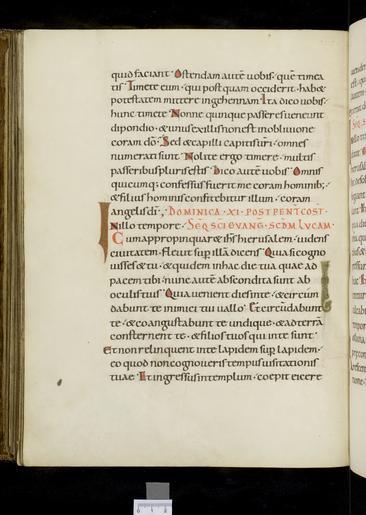 quid faciant. Ostendam autē vobis. quē timea
tis. Timete eum. qui postquam occiderit. habet
potestatem mittere ingehennam. Ita dico vobis.
hunc timete. Nonne quinque passeres veneunt
dipondio. & unus exillis nonest in oblivione
coram dō. Sed & capilli capitis uri. omnes
numerati sunt. Nolite ergo timere. multis
passeribus plurisestis. Dico autē vobis. Omnis
quicumq; confessus fuerit me coram hominib;.
& filius hominis confitebitur illum. coram
angelis dī. DOMINICA. XI. POST PENT̄ COST̄
In illo tempore. SEQ̄ SCĪ EVANG̅. SCDM̄ LVCAM.
Cum appropinquar& ih̄s hierusalem. videns
civitatem. flevit sup illā dicens. Quia si cogno
visses & tu. & quidem inhac die tua quae ad
pacem tibi. nunc autē abscondita sunt ab
oculis tuis. Quia venient dies inte. & circūm
dabunt te inimici tui vallo. Et circūdabunt
te. & coangustabunt te undique. & ad terrā
consternent te. & filios tuos qui inte sunt.
Et non relinquent inte lapidem sup lapidem.
eo quod non cognoveris tempus visitationis
tuae. Et ingressus in templum. coepit eicere